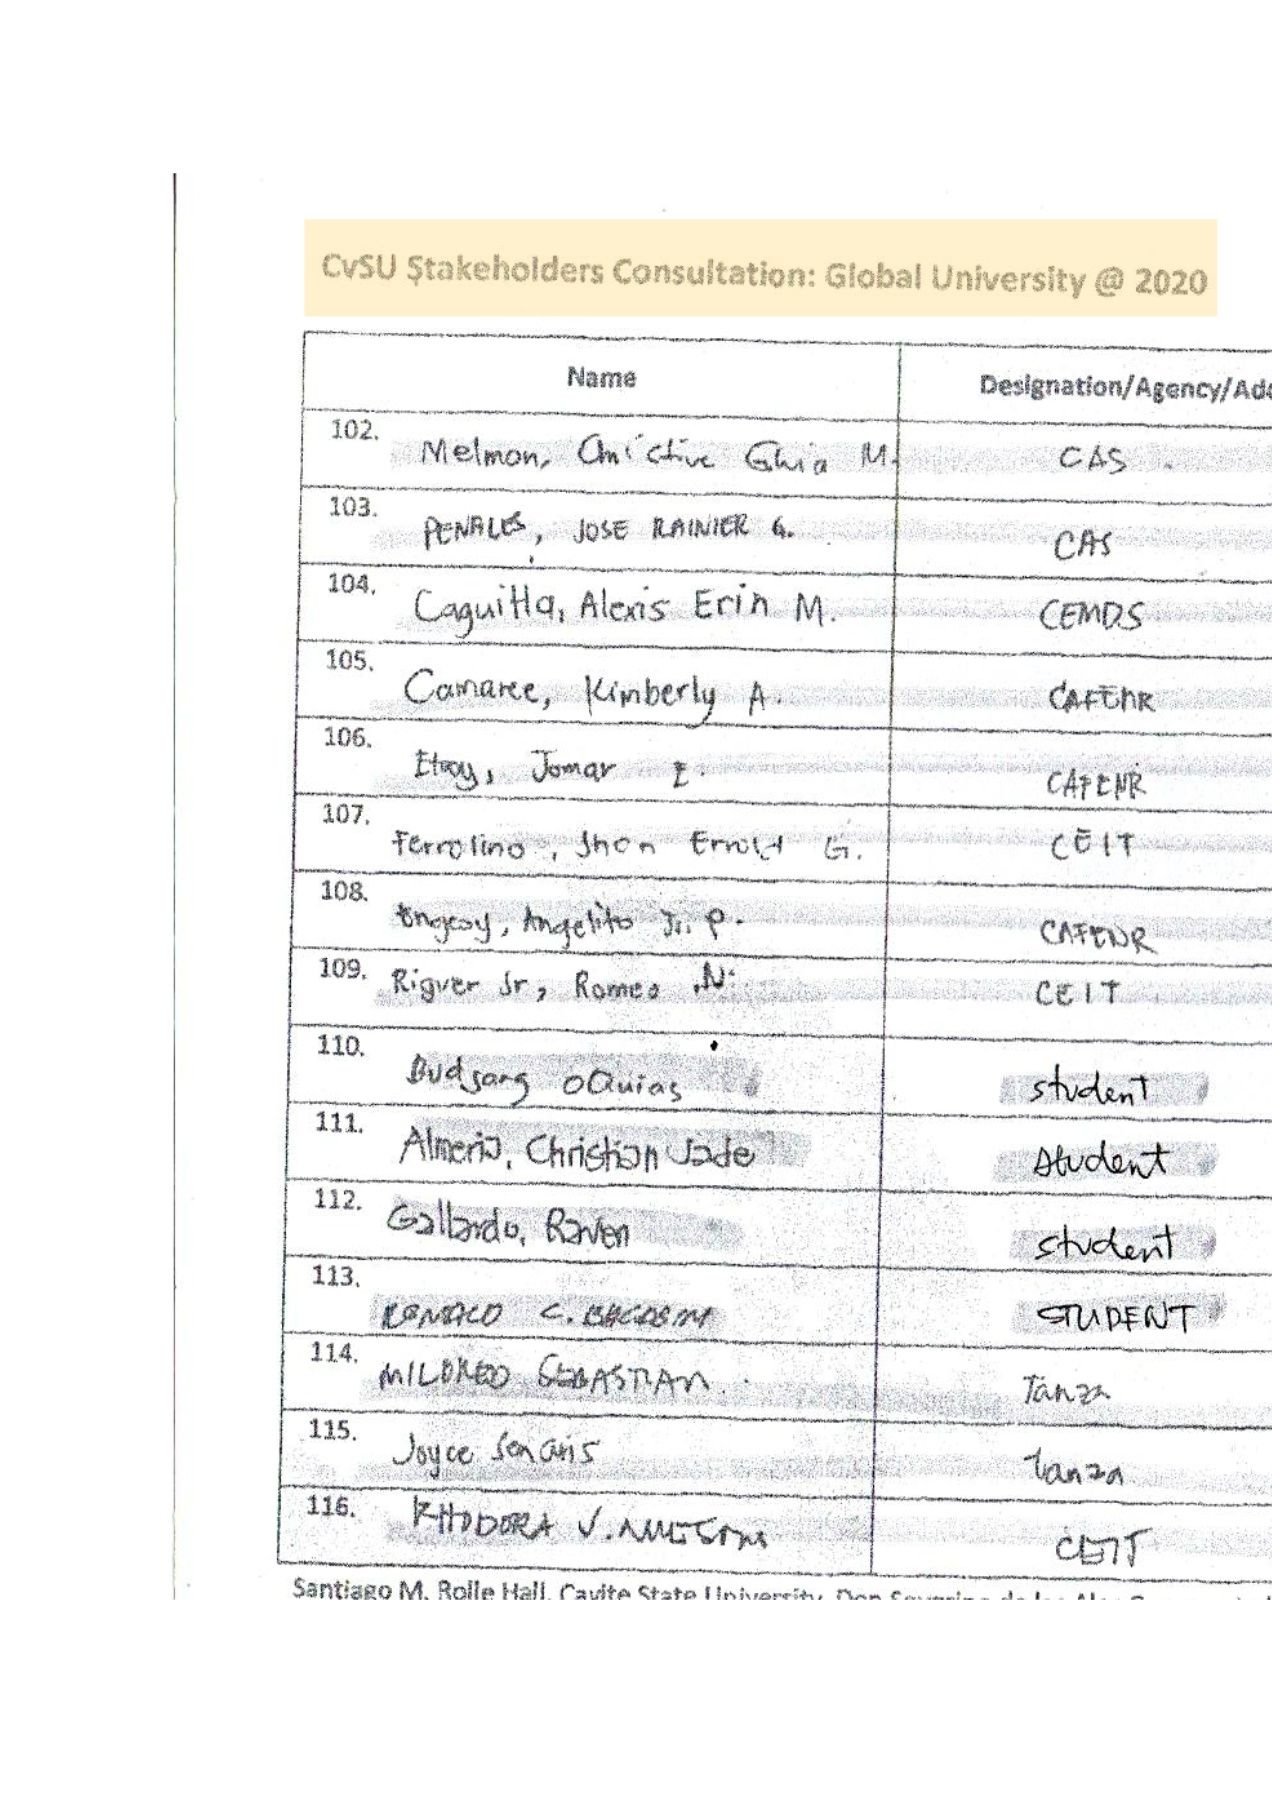 CvSU Stakeholders Consultation: Global University @ 2020
Name Designation/Agency/Add
102. Melmon, Christine Ghia M. CAS
103. PENALES, JOSE RAINIER G. CAS
104. Caguitla, Alexis Erin M. CEMDS
105. Camaree, Kimberly A. CAFENR
106. Jomar CAFENR
107. Ferrolino, Jhon Errold G. CEIT
108. Angelito Jr. P. CAFENR
109. Riguer Jr, Romeo N. CEIT
110. student
111. Almeria, Christian Jade student
112. Gallardo, Raven student
113. C. STUDENT
114. MILDRED SEBASTIAN Tanza
115. Joyce Tanza
116. RHODORA V. CEIT
Santiago M. Rolle Hall, Cavite State University, Don Severino de las Alas